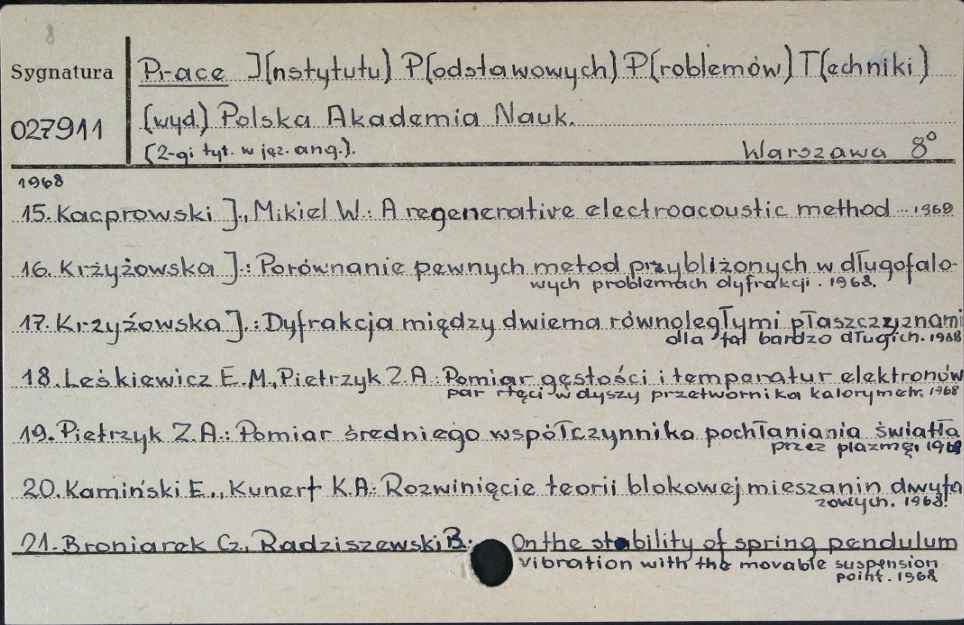 8
Sygnatura
027911
Prace I(nstytutu) P(odstawowych) P(roblemów) T(echniki)
(wyd.) Polska Akademia Nauk.
(2-gi tyt. w jęz. ang.).
Warszawa 8°
1968
15. Kacprowski J., Mikiel W.: A regenerative electroacoustic method 1968
16. Krzyżowska J.: Porównanie pewnych metod przybliżonych w długofalo-
wych problemach dyfrakcji. 1968.
17. Krzyżowska J.: Dyfrakcja między dwiema równoległymi płaszczyznami
dla fal bardzo długich. 1968
18. Leśkiewicz E.M., Pietrzyk Z.A.: Pomiar gęstości i temperatur elektronów
par rtęci w dyszy przetwornika kalorymetr. 1968
19. Pietrzyk Z.A.: Pomiar średniego współczynnika pochłaniania światła
przez plazmę. 1968
20. Kamiński E., Kunert K.A.: Rozwinięcie teorii blokowej mieszanin dwufa
zowych. 1968.
21. Broniarek Cz., Radziszewski B.: On the stability of spring pendulum
vibration with the movable suspension
point. 1968